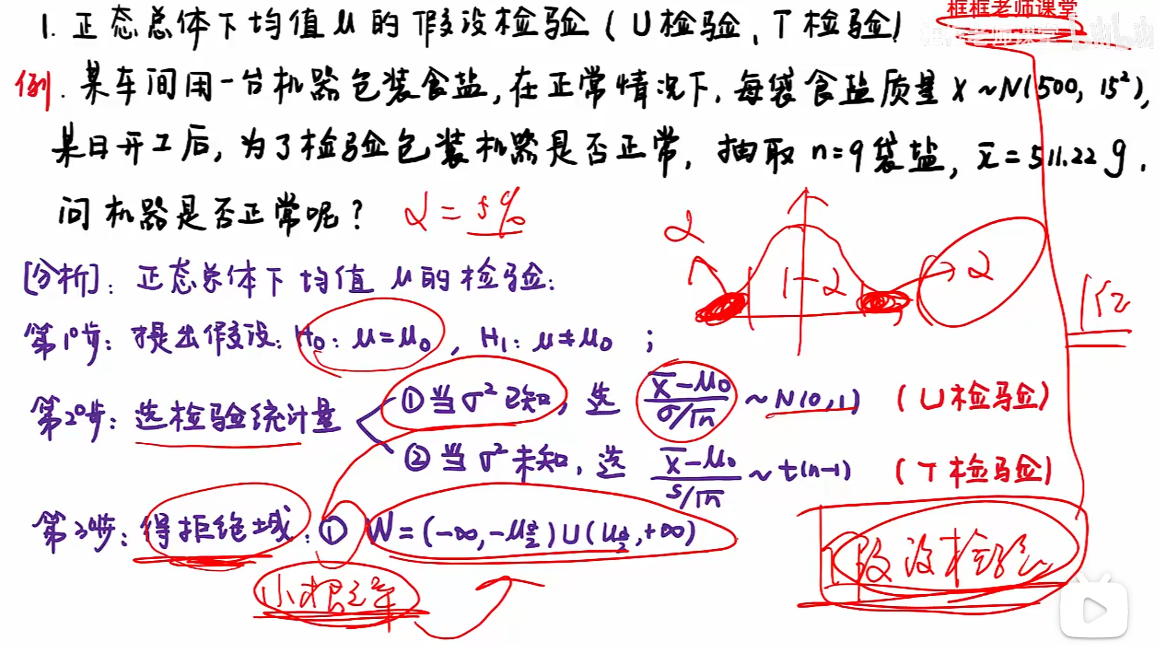 框框老师课堂
1. 正态总体下均值 μ 的假设检验 (U检验、T检验)
例. 某车间用一台机器包装食盐,在正常情况下,每袋食盐质量 X ~ N(500, 15²),
某日开工后,为了检验包装机器是否正常,抽取 n=9袋盐, x̄=511.22 g.
问机器是否正常呢? α=5%
α 1-α α
[分析]: 正态总体下均值 μ 的检验:
第1步: 提出假设: H₀: μ=μ₀, H₁: μ≠μ₀ ;
第2步: 选检验统计量 ①当σ²已知, 选 (x̄-μ₀)/(σ/√n) ~ N(0,1) (U检验)
②当σ²未知, 选 (x̄-μ₀)/(s/√n) ~ t(n-1) (T检验)
第3步: 得拒绝域: ① W=(-∞, -μ_{α/2})∪(μ_{α/2}, +∞)
小概率
假设检验